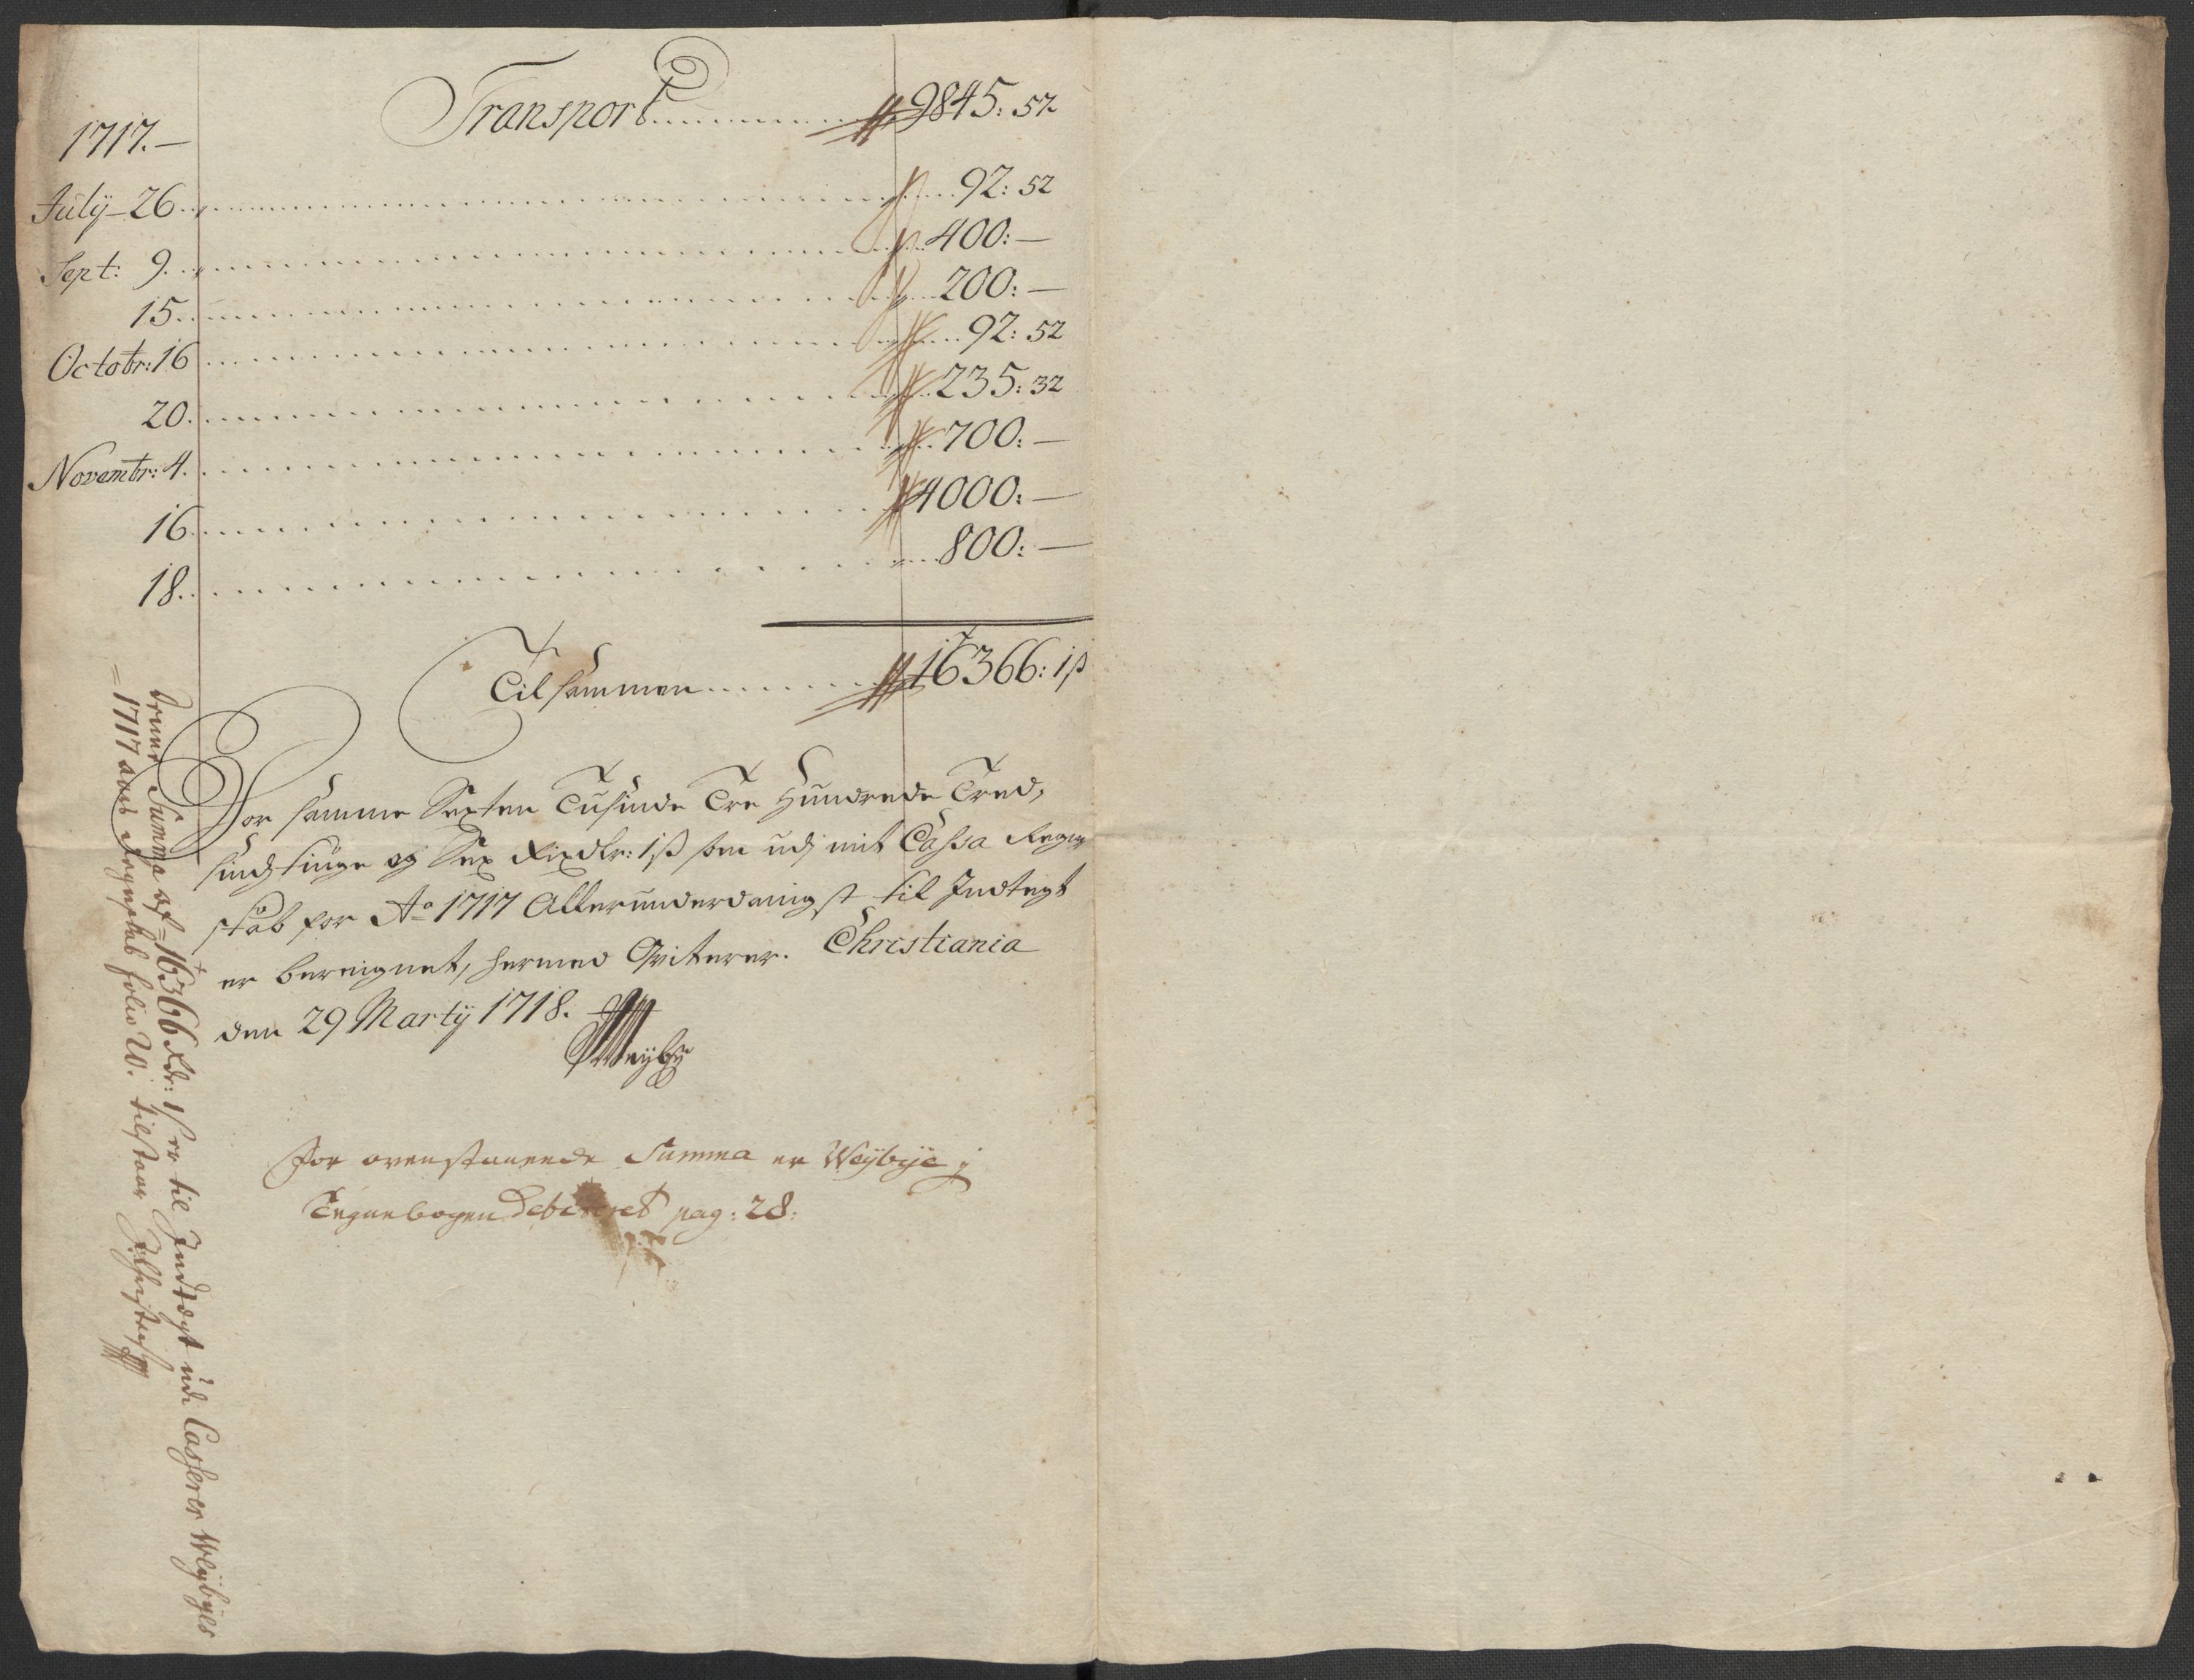 Transport 9845: 52
1717.—
July 26. 92: 52
Sept: 9. 400:—
15. 200:—
Octobr: 16 92: 52
20. 235: 32
Novembr: 4. 700:—
16 4000:—
18. 800:—
Tilsammen 16366: 1ß
For samme Sexten Tusinde Tre Hundrede Tred,
sinds tiuge og Sex Rixdlr: 1ß som udj mit Cassa Regn
skab for Ao 1717 Allerunderdanigst til Indtegt
er bereignet, hermed Qviterer. Christiania
den 29 Martÿ 1718.
Weÿbÿe
For ovenstaaende Summa er Weÿbÿe j
Tegnebogen Debiteret pag: 28:
Denne Summa af = 16366 Rdr: 1ß er til Indtægt udi Casserer Weÿbÿes
= 1717 aars Regnskab folio 20. tilstaar